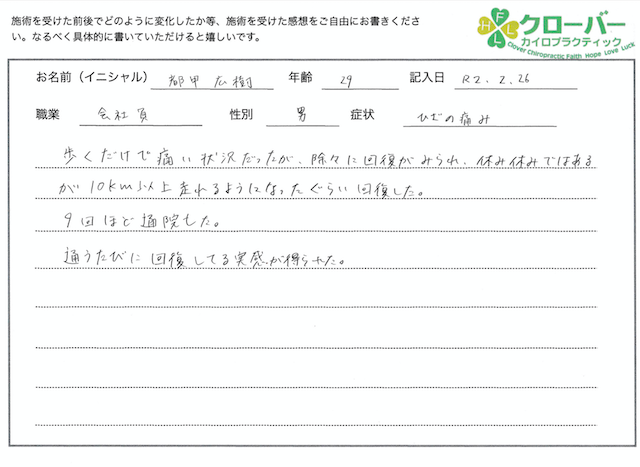 施術を受けた前後でどのように変化したか等、施術を受けた感想をご自由にお書きくださ
い。なるべく具体的に書いていただけると嬉しいです。
クローバー
カイロプラクティック
Clover Chiropractic Faith Hope Love Luck
お名前（イニシャル） 都甲広樹 年齢 29 記入日 R2.2.26
職業 会社員 性別 男 症状 ひざの痛み
歩くだけで痛い状況だったが、除々に回復がみられ、休み休みではある
が10km以上走れるようになったぐらい回復した。
9回ほど通院した。
通うたびに回復してる実感が得られた。